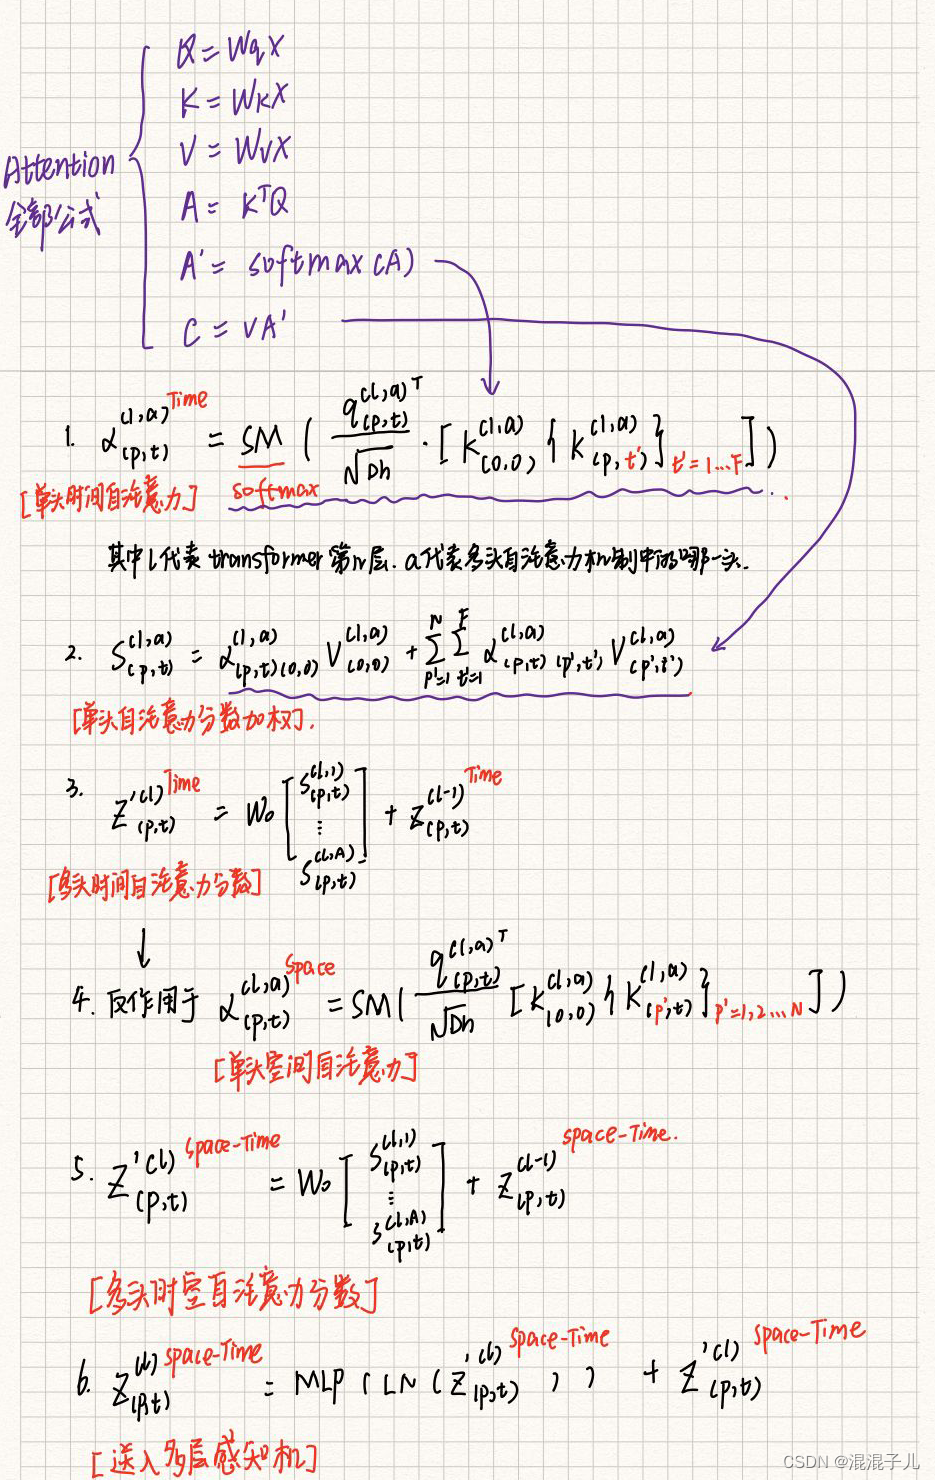 Q = WqX
K = WkX
V = WvX
Attention
全部公式
A = K^T Q
A' = softmax(A)
C = VA'
1. α_(p,t)^(l,a) Time = SM ( q_(p,t)^(l,a)T / √Dh · [ k_(0,0)^(l,a) { k_(p,t')^(l,a) }_t'=1...F ] )
[单头时间自注意力] softmax
其中l代表transformer第n层. a代表多头自注意力机制中的哪一头.
2. S_(p,t)^(l,a) = α_(p,t)(0,0)^(l,a) V_(0,0)^(l,a) + Σ_p'=1^N Σ_t'=1^F α_(p,t)(p',t')^(l,a) V_(p',t')^(l,a)
[单头自注意力分数加权].
3. Z'_(p,t)^(l) Time = W₀ [ S_(p,t)^(l,1) ⋮ S_(p,t)^(l,A) ] + Z_(p,t)^(l-1) Time
[多头时间自注意力分数]
↓
4. 反作用于 α_(p,t)^(l,a) Space = SM( q_(p,t)^(l,a)T / √Dh [ k_(0,0)^(l,a) { k_(p',t)^(l,a) }_p'=1,2...N ] )
[单头空间自注意力]
5. Z'_(p,t)^(l) Space-Time = W₀ [ S_(p,t)^(l,1) ⋮ S_(p,t)^(l,A) ] + Z_(p,t)^(l-1) Space-Time.
[多头时空自注意力分数]
6. Z_(p,t)^(l) Space-Time = MLP ( LN ( Z'_(p,t)^(l) Space-Time ) ) + Z'_(p,t)^(l) Space-Time
[送入多层感知机]
CSDN @混混子儿